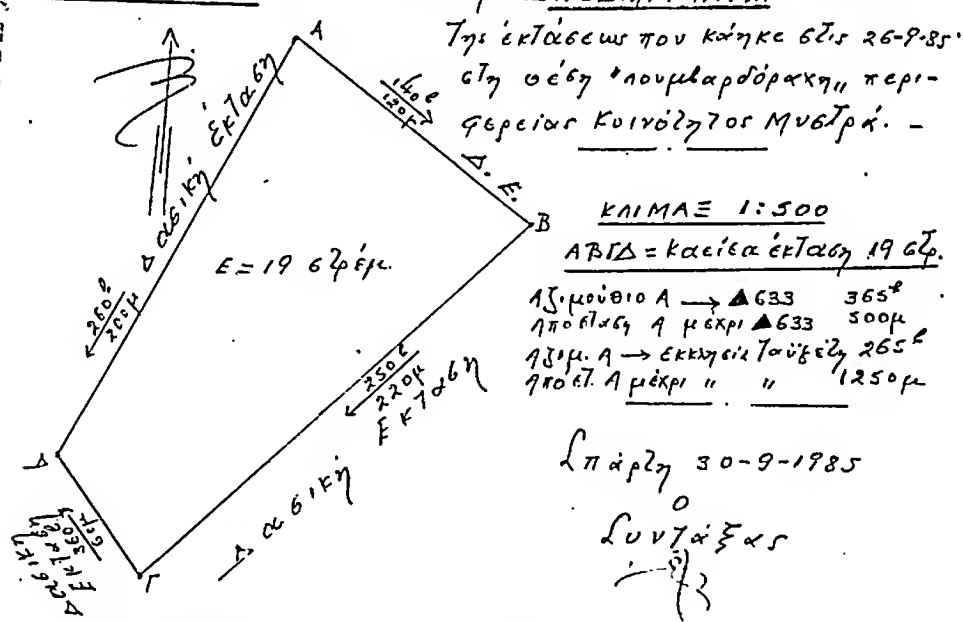 Της ἐκτάσεως που κάηκε στις 26-9-85
στη θέση "Λουμβαρδόραχη" περι-
φερείας Κοινότητος Μυστρά. -
ΚΛΙΜΑΞ 1:500
ΑΒΓΔ = Καείσα έκταση 19 στρ.
Αζιμούθιο Α → ▲633 365ᵍ
Απόσταση Α μέχρι ▲633 500μ
Αζιμ. Α → Εκκλησία Ταϋγέτη 265ᵍ
Αποστ. Α μέχρι " " 1250μ
Σπάρτη 30-9-1985
Ο
Συντάξας
Α
140ᵍ
120μ
Δ. Ε.
Β
Δασική έκταση
Ε = 19 στρέμ.
260ᵍ
200μ
250ᵍ
220μ
Δασική Έκταση
Δ
360ᵍ
60μ
Δασική
Έκταση
Γ